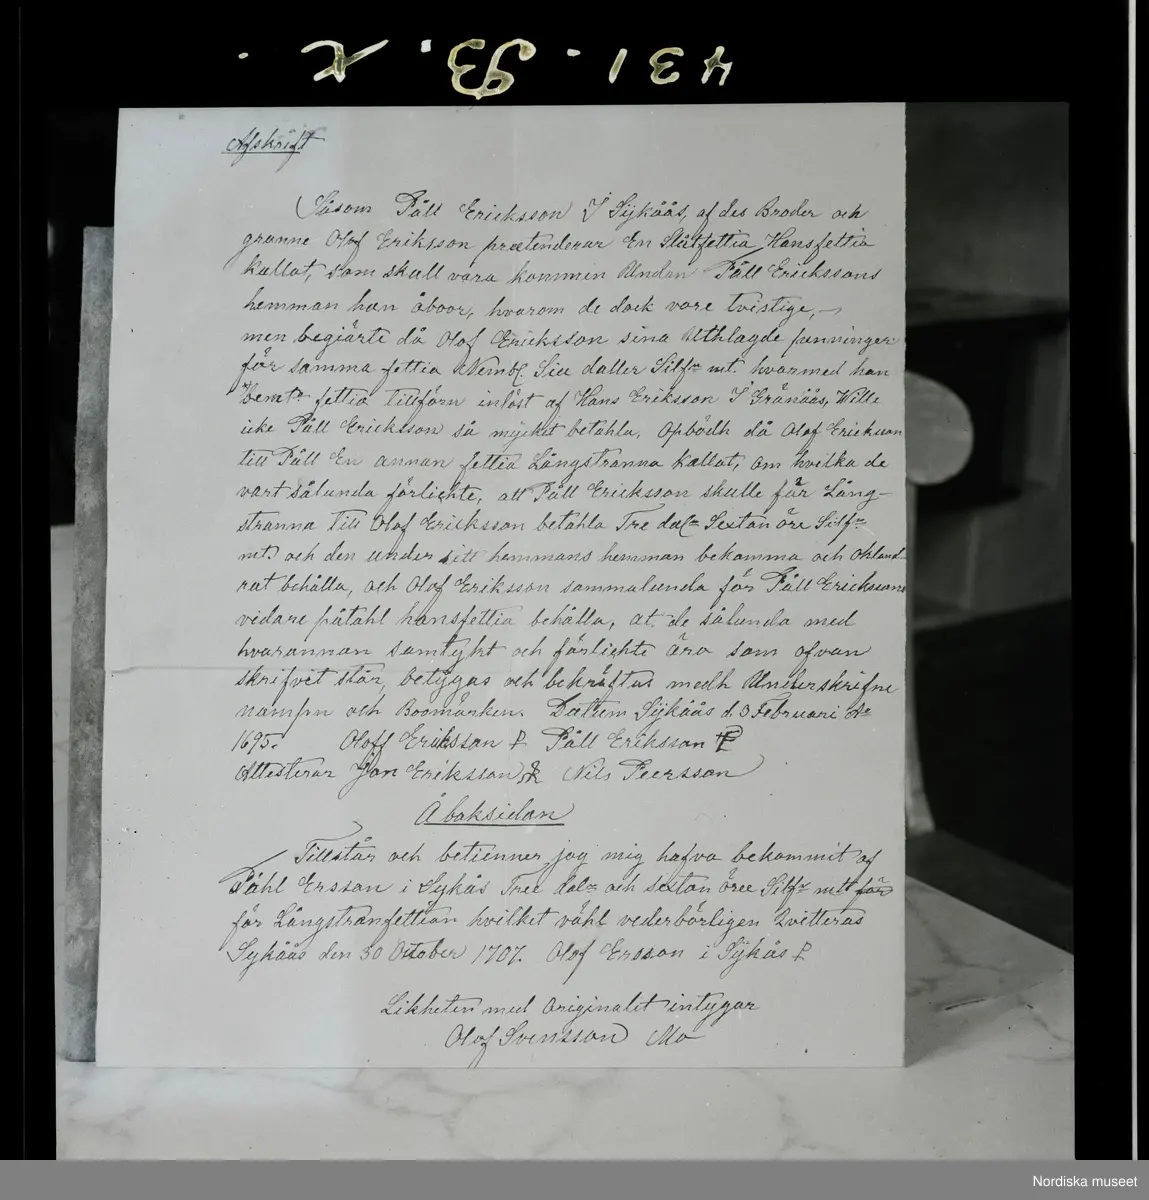 431. B. K.
Afskrift
Såsom Påll Ericksson I Sÿkåås, af des Broder och
granne Olof Eriksson prætenderar En Slåtfettia Hansfettia
kallat, som skall vara kommin Undan Påll Erickssons
hemman han åboor, hvarom de dock vore tvistige, —
men begiärte då Olof Ericksson sina Uthlagde penninger
för samma fettia Nembl. Siu daller Silfr mt. hvarmed han
bemte fettia tillförn inlöst af Hans Eriksson I Gränåås, Wille
icke Påll Ericksson så mÿcket betahla, opbödh då Olof Ericksson
till Påll En annan fettia Långstranna kallat, om hvilka de
vart sålunda förlichte, att Påll Ericksson skulle för Lång-
stranna till Olof Ericksson betahla Tre dalr Sextan öre Silfr
mt. och den under sitt hemmans hemman bekomma och okland-
rat behålla, och Olof Eriksson sammalunda för Påll Erickssons
vidare påtahl hansfettia behålla, at de sålunda med
hvarannan samtyht och förlichte äro som ofvan
skrifvet står, betÿgas och bekräftas medh Underskrifne
nampn och Boomärken. Datum Sÿkåås d. 3 Februari Ao
1695. Oloff Eriksson Påll Eriksson
Attesterar Jon Eriksson Nils Peersson
Å baksidan
Tillstår och betienner jag mig hafva bekommit af
Påhl Ersson i Sykås Tree dalr och sextan öree Silfr mtt för
för Långstranfettian hvilket vähl vederbörligen qvitteras
Sykåås den 30 October 1707. Olof Ersson i Sÿkås
Likheten med Originalet intygar
Olof Svensson Mo
Nordiska museet